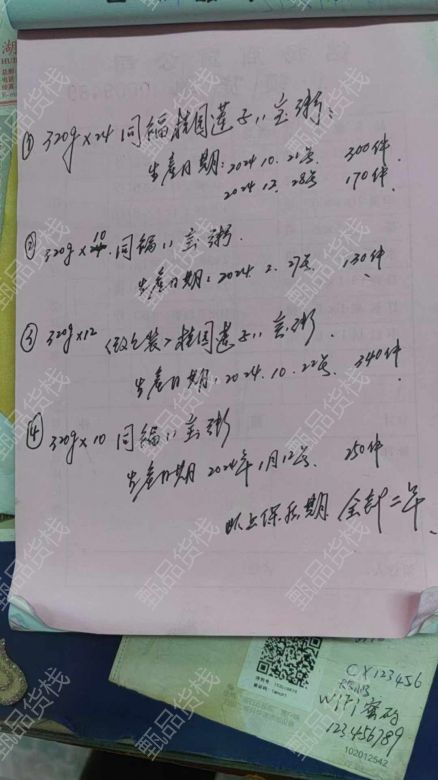 ① 320g×24 同福桂圆莲子八宝粥:
生产日期:2024.10.21号 300件
2024.12.28号 170件.
② 320g×10 同福八宝粥.
生产日期:2024.2.27号. 130件、
③ 320g×12 〈改包装〉桂圆莲子八宝粥.
生产日期:2024.10.22号. 340件
④ 320g×10 同福八宝粥
生产日期 2024年1月12号. 250件
以上保质期 全部二年.
湖
CX123456
WiFi密码
123456789
102012542
甄品货栈